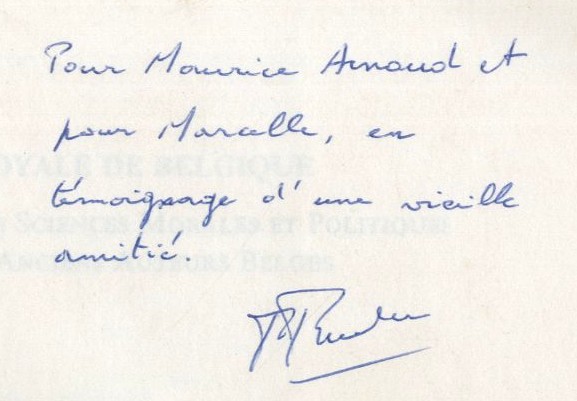 Pour Maurice Arnould et
pour Marcelle, en
OYALE DE BELGIQUE
témoignage d'une vieille
SCIENCES MORALES ET POLITIQUES
amitié.
ANCIENS AUTEURS BELGES